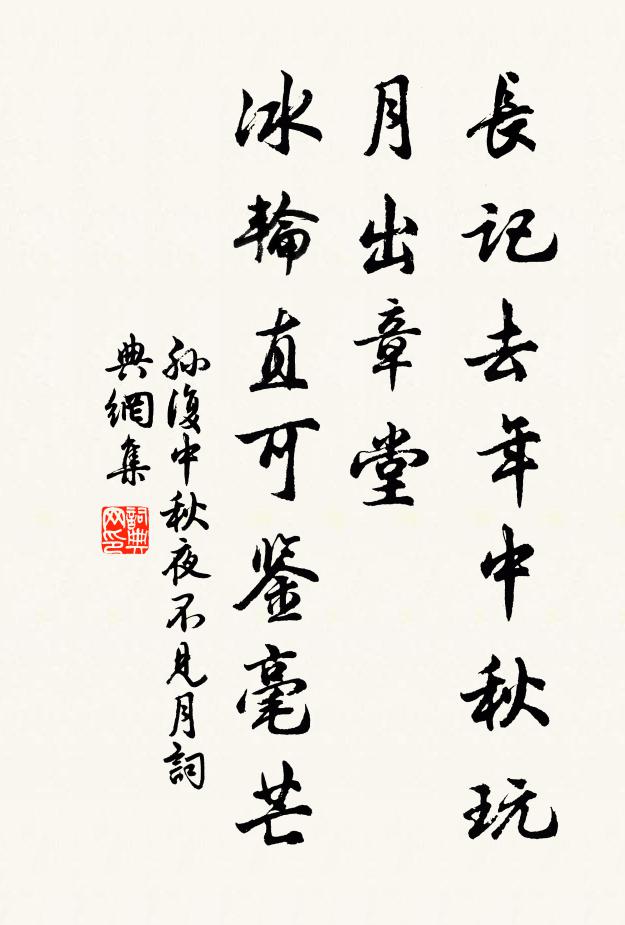 長記去年中秋玩
月出章堂
冰輪直可鉴毫芒
孫復中秋夜不見月詞
典網集
詞典网印